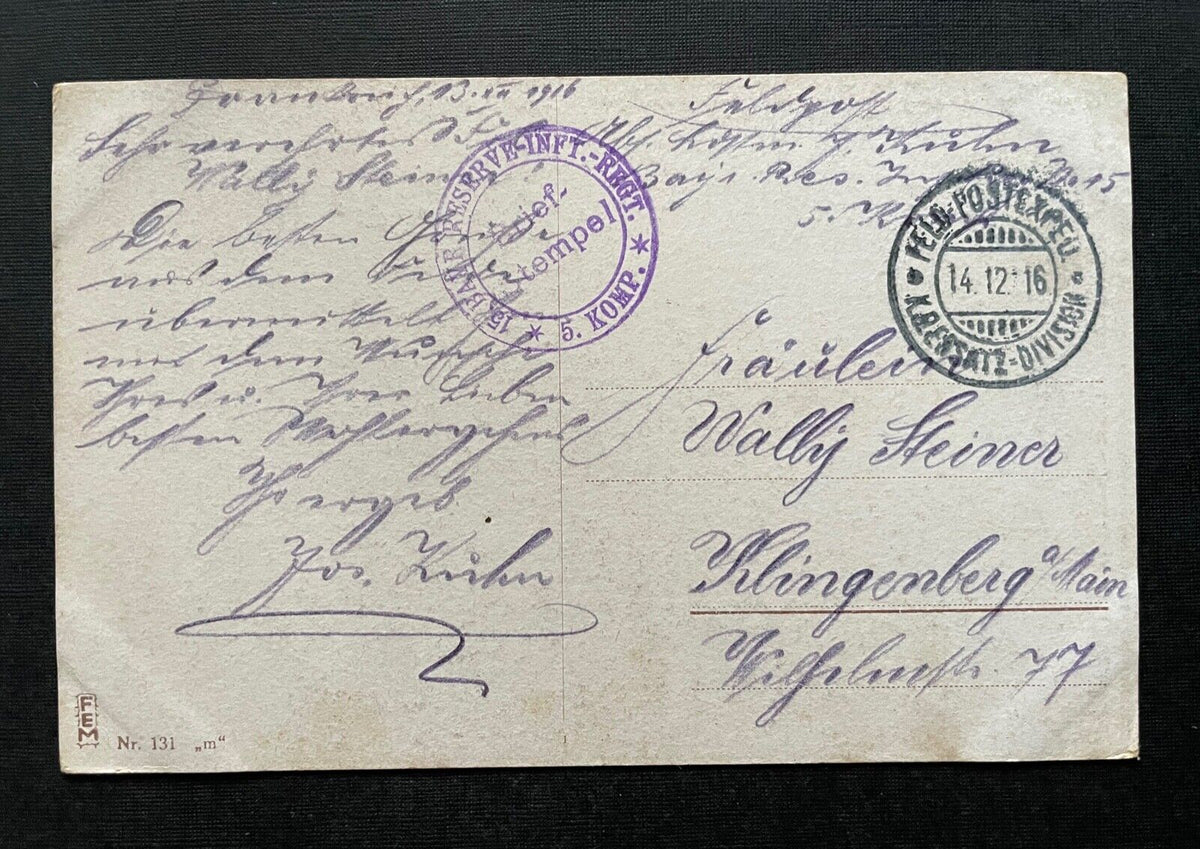 Frankreich, 13. XII 1916
Feldpost
Sehr verehrtes Frl.
Wally Steiner
Abs. J. Kuhn
Bayr. Res. Inf. No 15
5. K
Die besten Grüße
aus dem Felde
übermittelt
mit dem Wunsche
Ihres u. Ihrer Lieben
besten Wohlergehens
Ihr ergeb.
Jos. Kuhn
15. BAYR. RESERVE-INFT.-REGT.
* 5. KOMP. *
Brief-
stempel
FELD-POSTEXPED.
14.12.16
K.B. ERSATZ-DIVISION
Fräulein
Wally Steiner
Klingenberg a/Main
Wilhelmstr. 77
FEM
Nr. 131 „m“